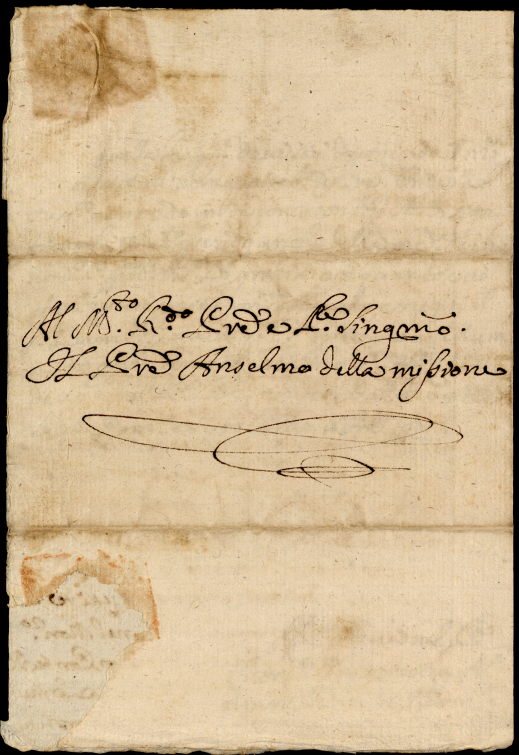 Al M.to R.do Pred.e P.e Singmo.
Il Pred.e Anselmo della missione